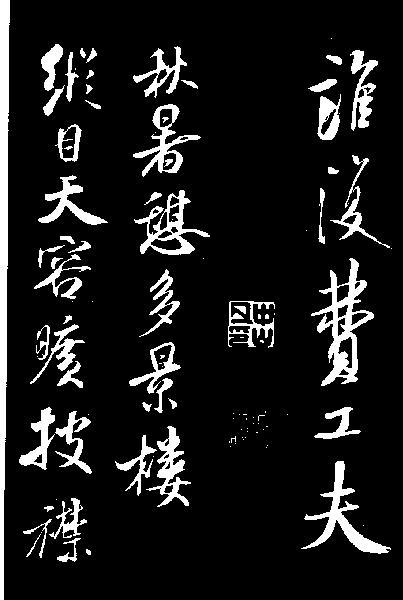 誰復費工夫
秋暑憩多景樓
縱目天容曠披襟